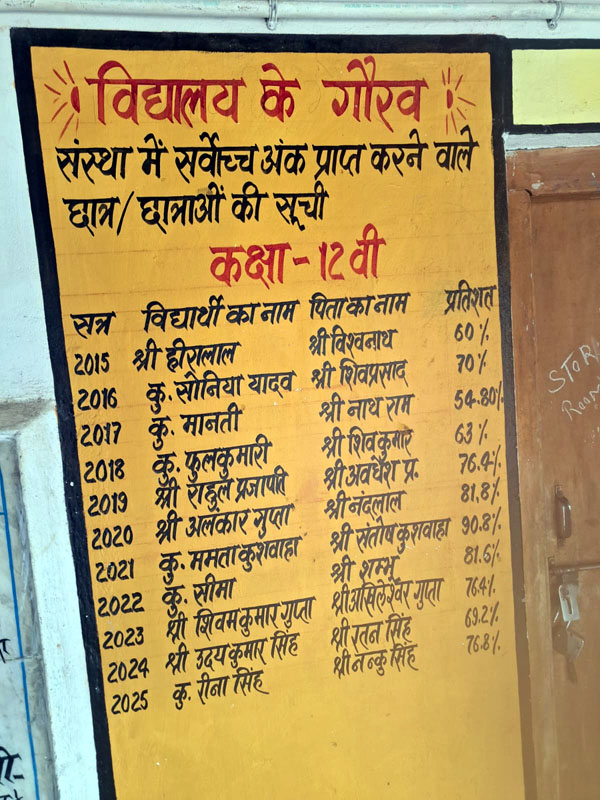 विद्यालय के गौरव
संस्था में सर्वोच्च अंक प्राप्त करने वाले
छात्र/छात्राओं की सूची
कक्षा - 12 वी
सत्र विद्यार्थी का नाम पिता का नाम प्रतिशत
2015 श्री हीरालाल श्री विश्वनाथ 60%
2016 कु. सोनिया यादव श्री शिवप्रसाद 70%
2017 कु. मानती श्री नाथ राम 54.80%
2018 कु. फुलकुमारी श्री शिव कुमार 63%
2019 श्री राहुल प्रजापति श्री अवधेश प्र. 76.4%
2020 श्री अलकार गुप्ता श्री नंदलाल 81.8%
2021 कु. ममता कुशवाहा श्री संतोष कुशवाहा 90.8%
2022 कु. सीमा श्री शम्भू 81.6%
2023 श्री शिवम कुमार गुप्ता श्री अखिलेश्वर गुप्ता 76.4%
2024 श्री उदय कुमार सिंह श्री रतन सिंह 69.2%
2025 कु. रीना सिंह श्री नन्कु सिंह 76.8%
STOR
Room